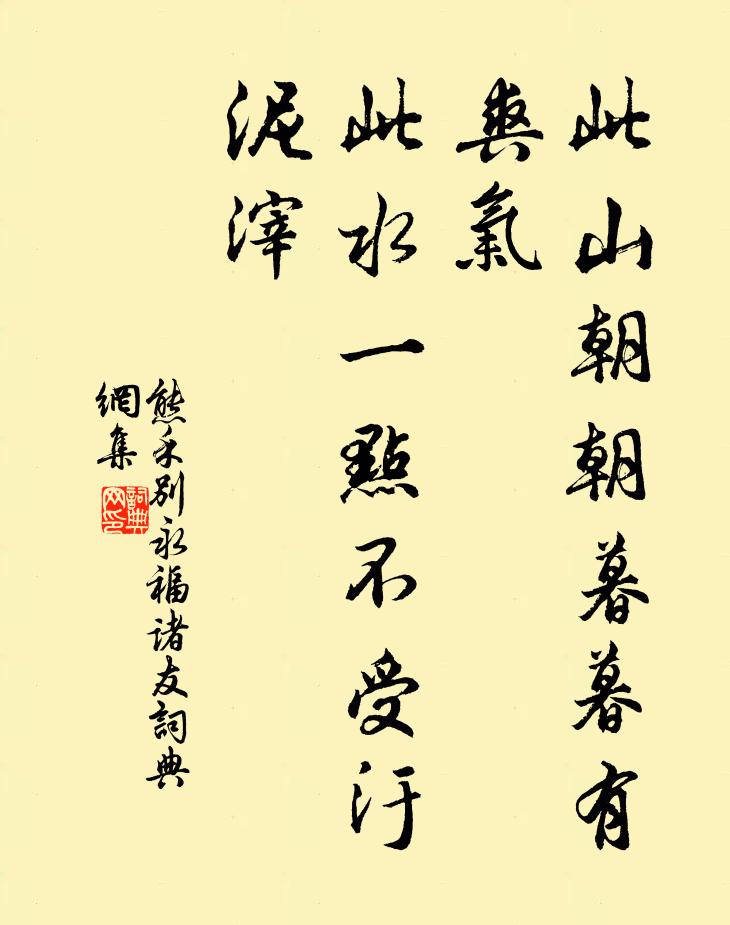 此山朝朝暮暮有
爽氣
此水一點不受汙
泥滓
熊禾別永福諸友詞典
網集
詞典
网印